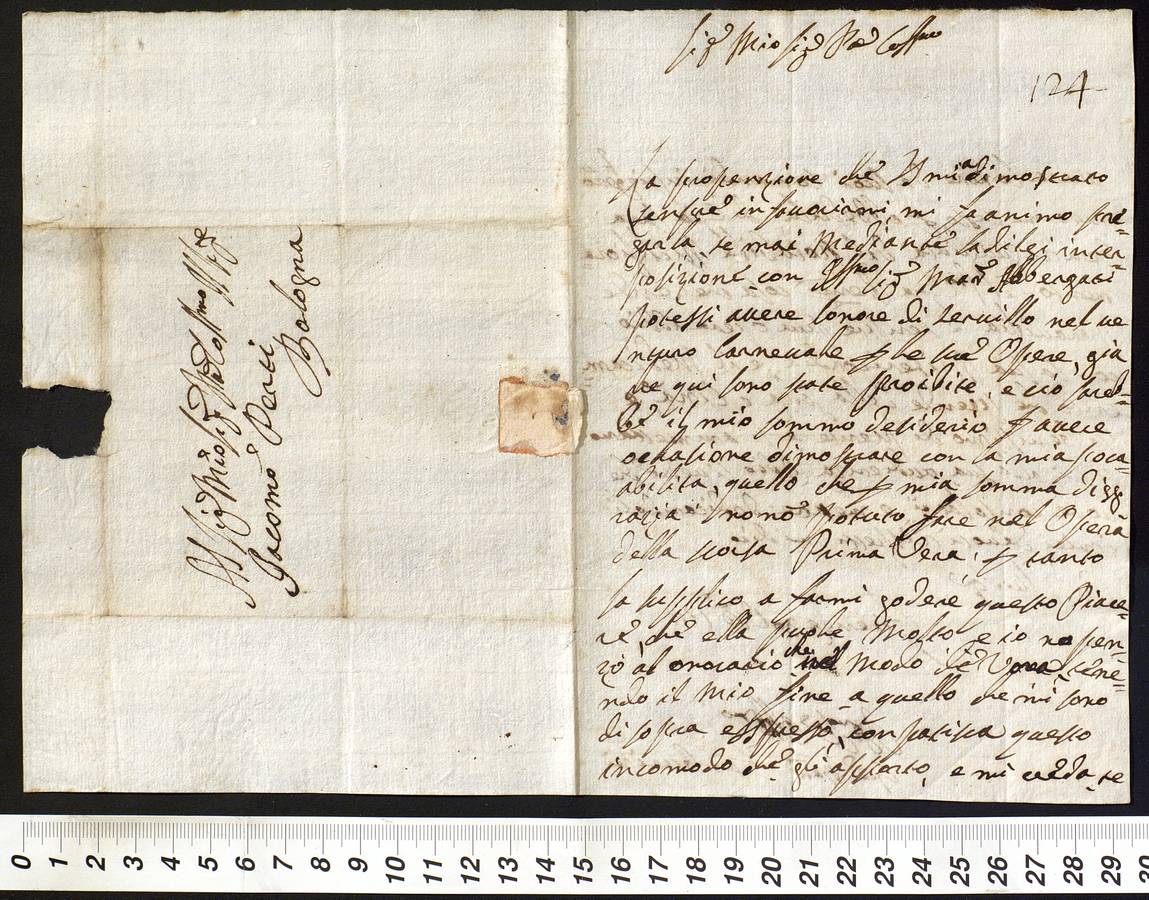 Al Sig.r Mio Sig.r Pad.e Col.mo Il Sig.r
Giacomo Perti
Bologna
Sig.r Mio Sig.r Pad.e Coll.mo
124
La propenzione che V.S. mi a dimostrato
sempre in favorirmi, mi fa animo pre=
garla se mai mediante la di lei inter=
posizione con Ill.mo Sig.r Mar.e Albergati
potessi avere l'onore di servillo nel ve
nturo Carnevale p le sue Opere, gia
che qui sono state proibite, e ciò sareb=
be il mio sommo desiderio p avere
occasione dimostrare con la mia poca
abilità, quello che p mia somma disg
razzia non ò potuto fare nel Opera
della scorsa Prima Vera, p tanto
la supplico a farmi godere questo Piace=
re che ella puole Molto e io no pen=
zo al onorario che nel modo
ndo il mio fine a quello che mi sono
di sopra espresso, compatisca questo
incomodo che gli apporto, e mi creda se
0 1 2 3 4 5 6 7 8 9 10 11 12 13 14 15 16 17 18 19 20 21 22 23 24 25 26 27 28 29 30